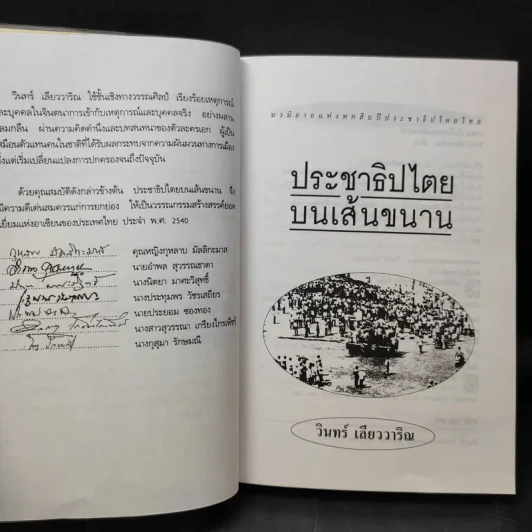 วินทร์ เลียววาริณ ใช้ชั้นเชิงทางวรรณศิลป์ เรียงร้อยเหตุการณ์
และบุคคลในจินตนาการเข้ากับเหตุการณ์และบุคคลจริง อย่างผสาน
กลมกลืน ผ่านความคิดคำนึงและบทสนทนาของตัวละครเอก ผู้เป็น
เสมือนตัวแทนคนในชาติที่ได้รับผลกระทบจากความผันผวนทางการเมือง
ตั้งแต่เริ่มเปลี่ยนแปลงการปกครองจนถึงปัจจุบัน
ด้วยคุณสมบัติดังกล่าวข้างต้น ประชาธิปไตยบนเส้นขนาน จึง
มีความดีเด่นสมควรแก่การยกย่อง ให้เป็นวรรณกรรมสร้างสรรค์ยอด
เยี่ยมแห่งอาเซียนของประเทศไทย ประจำ พ.ศ. 2540
คุณหญิงกุหลาบ มัลลิกะมาส
นายอำพล สุวรรณธาดา
นางนิตยา มาศะวิสุทธิ์
นางประทุมพร วัชรเสถียร
นายประยอม ซองทอง
นางสาวสุวรรณา เกรียงไกรเพ็ชร์
นางกุสุมา รักษมณี
นวนิยายแห่งหกสิบปีประชาธิปไตยไทย
ประชาธิปไตย
บนเส้นขนาน
วินทร์ เลียววาริณ